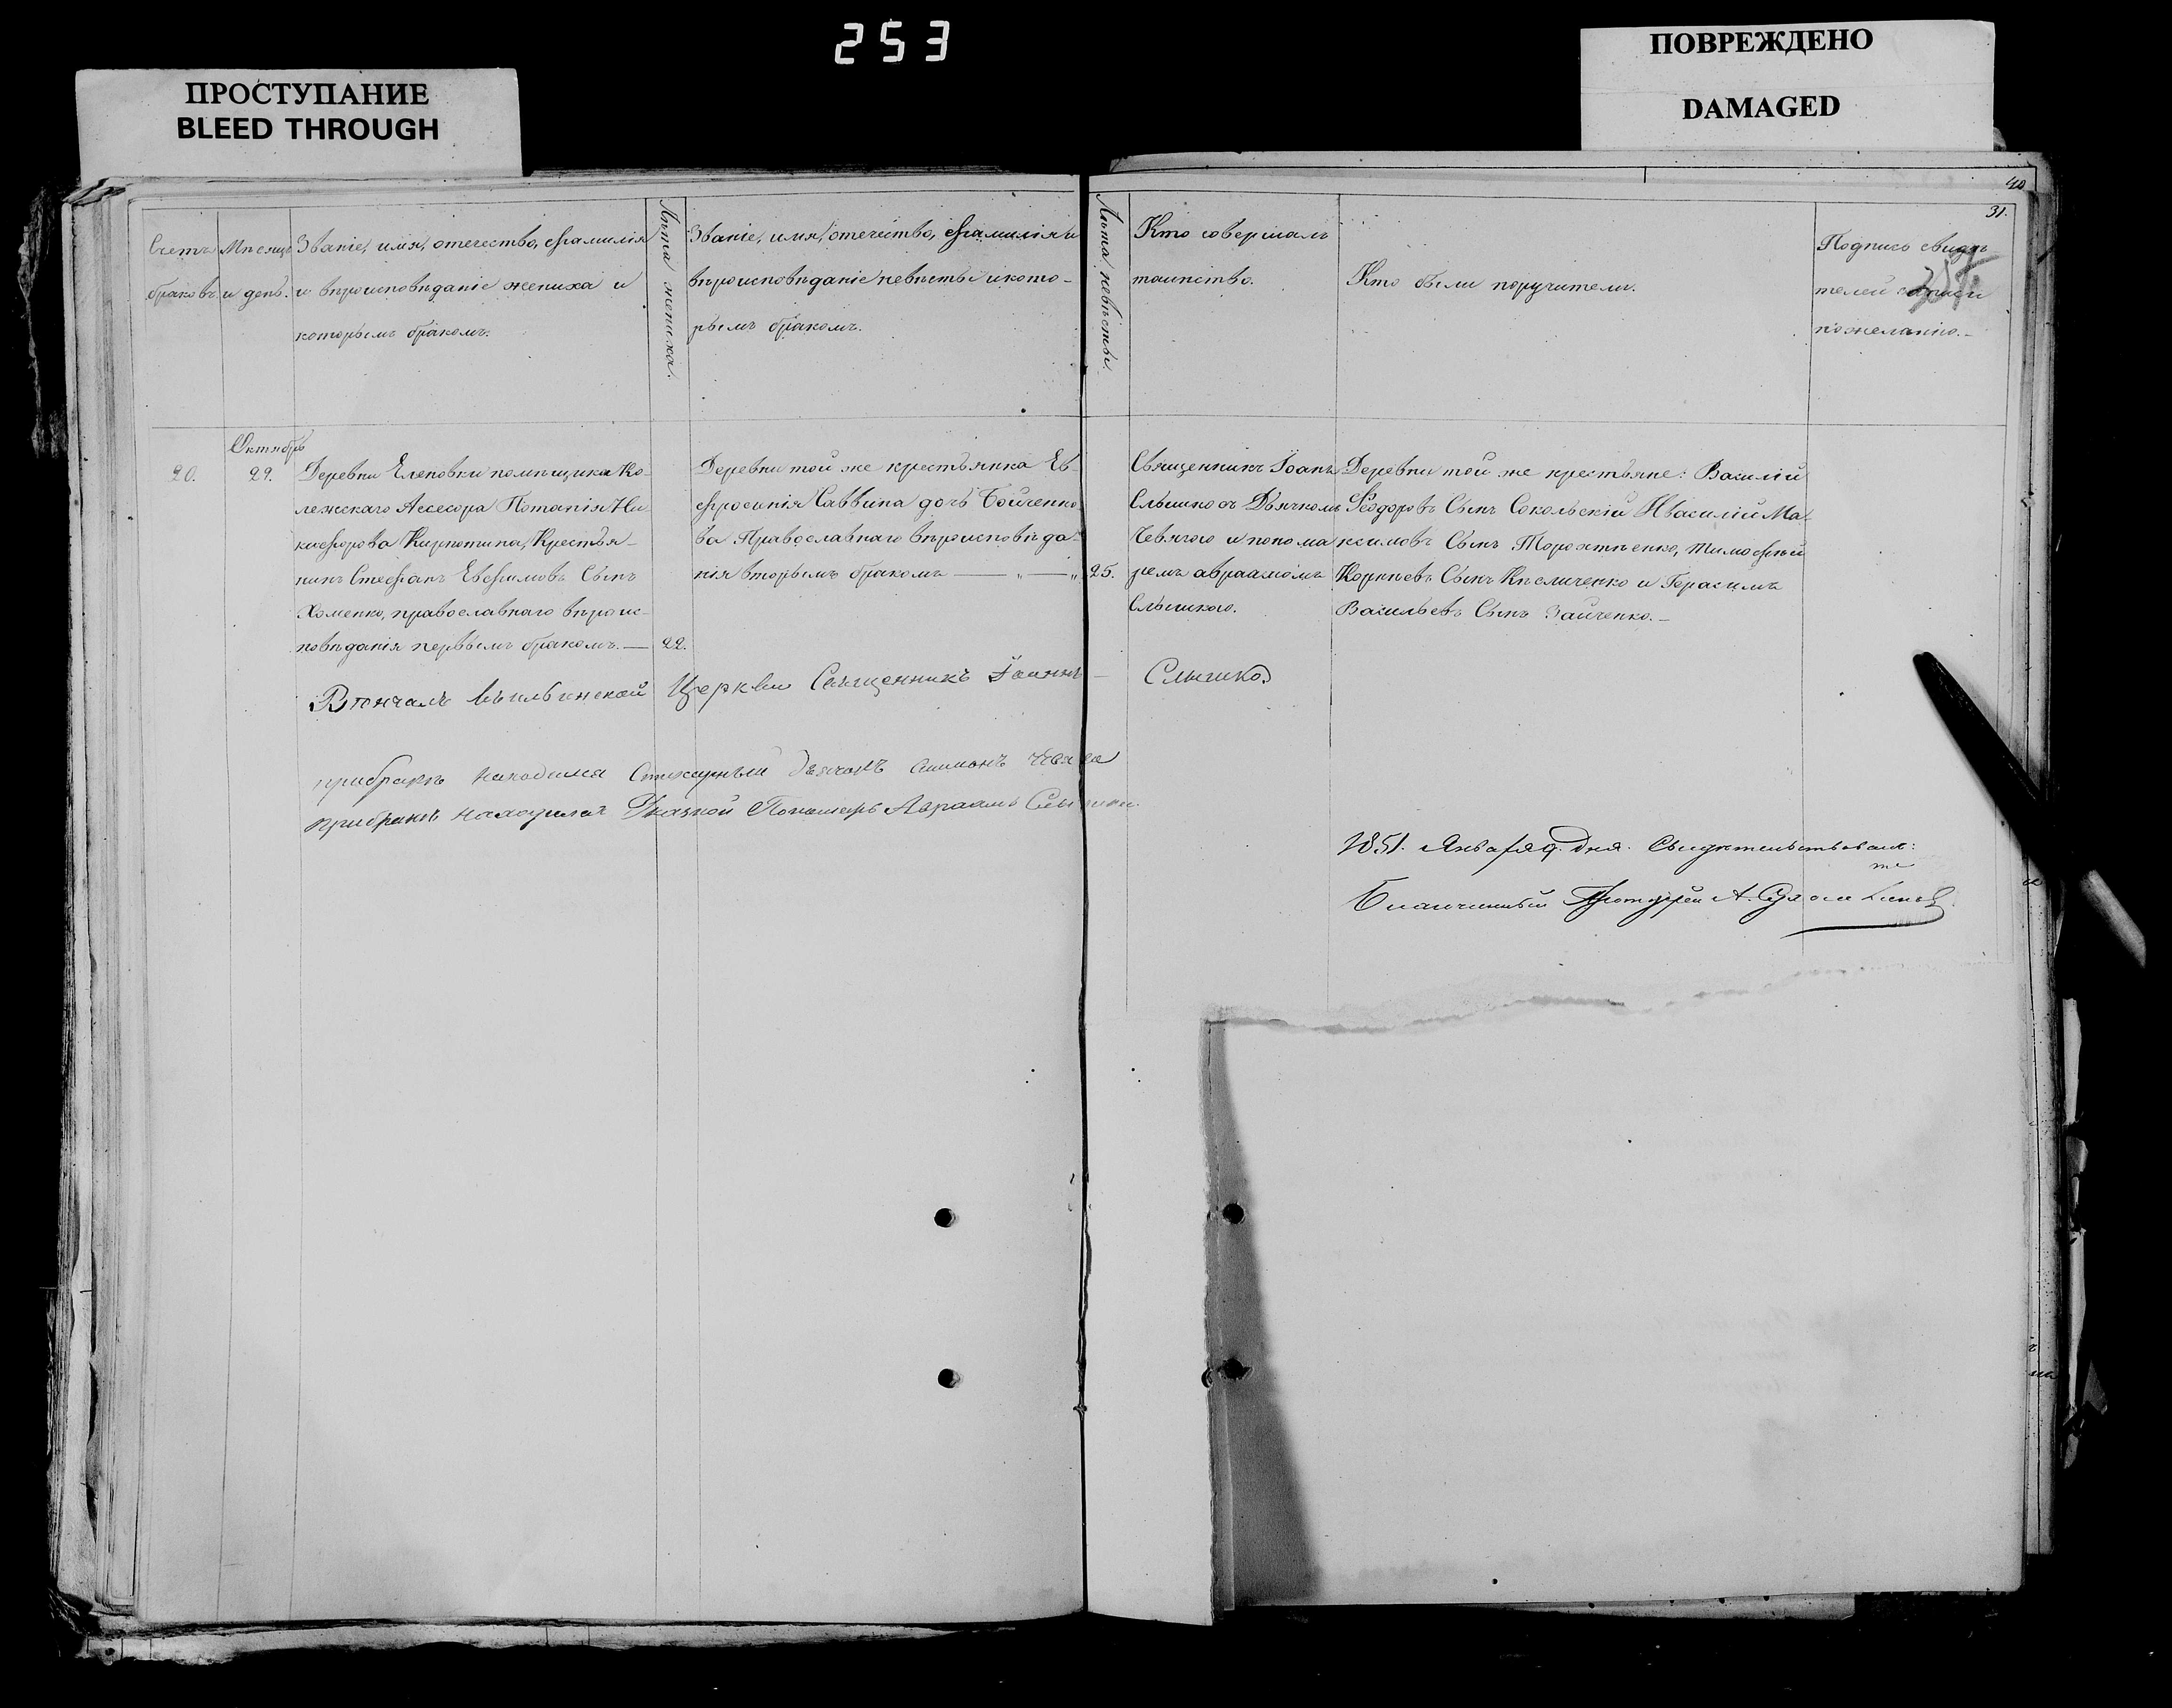 253
ПРОСТУПАНИЕ
BLEED THROUGH
ПОВРЕЖДЕНО
DAMAGED
40
31.
Счетъ
браковъ
Мѣсяцъ
и день.
Званіе, имя, отечество, фамилія
и вѣроисповѣданіе жениха и
которымъ бракомъ.
Лѣта жениха.
Званіе, имя, отечество, фамилія и
вѣроисповѣданіе невѣсты и кото-
рымъ бракомъ.
Лѣта невѣсты.
Кто совершалъ
таинство.
Кто были поручители.
Подпись свидѣ
телей записи
по желанію.
20.
Октябрь
29.
Деревни Еленовки помѣщика Ко-
лежскаго Ассесора Потапія Ни-
кифорова Кирпотина, Крестья-
нинъ Стефанъ Евфимовъ Сынъ
Хоменко, православнаго вѣроис-
повѣданія первымъ бракомъ.
22.
Деревни той же крестьянка Ев-
фросинія Саввина дочь Бойченко-
ва Православнаго вѣроисповѣда-
нія вторымъ бракомъ
25.
Священникъ Іоаннъ
Слышко съ Дьячкомъ
Чевягою и понома
ремъ авраамомъ
Слышкою.
Деревни той же крестьяне: Василій
Ѳеодоровъ Сынъ Сокольскій И василій Ма-
ксимовъ Сынъ Торохтѣенко, тимофѣй
Корнѣевъ Сынъ Кисличенко и Герасимъ
Васильевъ Сынъ Зайченко.
Вѣнчалъ Церкви Священникъ Іоаннъ Слышко
при бракѣ находился Стихарный дьячокъ симонъ
при бракѣ находился Пономарь Авраамъ Слышко
1851. Января 9. дня. Свидѣтельствовалъ:
Благочинный Протоіерей А.